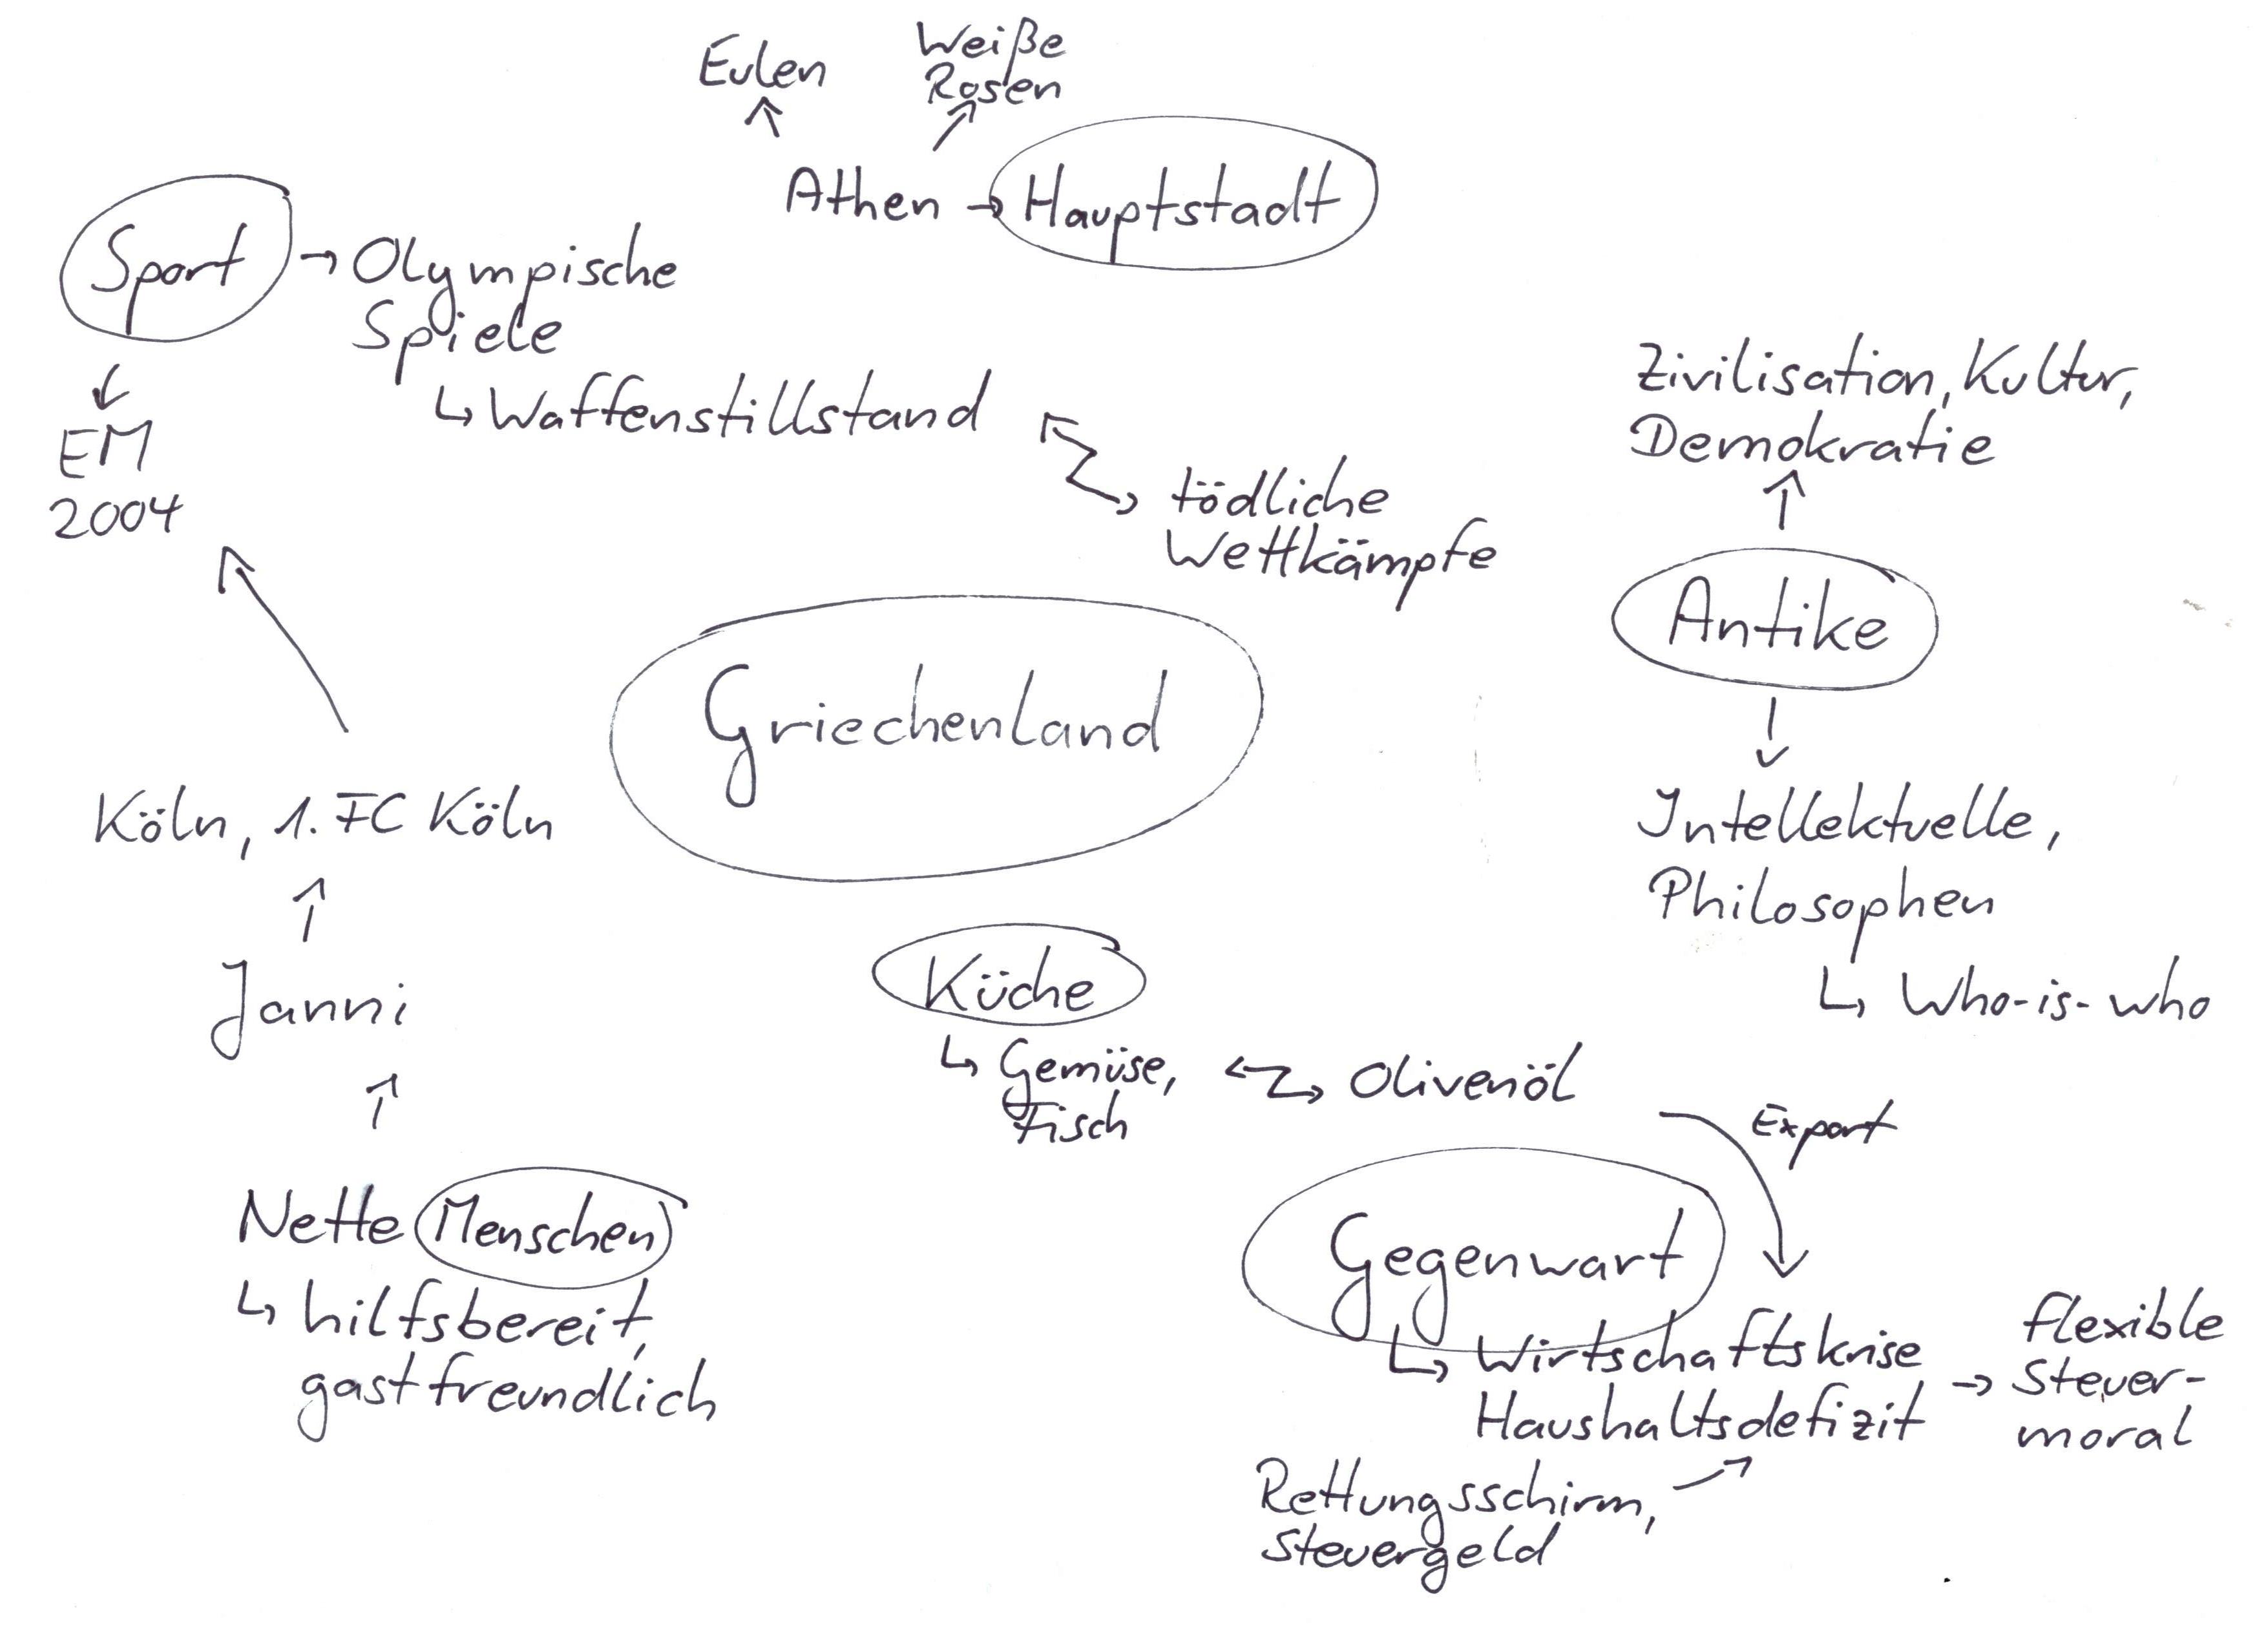 Eulen
Weiße
Rosen
Athen → Hauptstadt
Sport → Olympische
Spiele
↳ Waffenstillstand
EM
2004
tödliche
Wettkämpfe
Zivilisation, Kultur,
Demokratie
Antike
Intellektuelle,
Philosophen
↳ Who-is-who
Griechenland
Köln, 1. FC Köln
Janni
Nette Menschen
↳ hilfsbereit,
gastfreundlich
Küche
↳ Gemüse,
Fisch
Olivenöl
Export
Gegenwart
↳ Wirtschaftskrise
Haushaltsdefizit →
flexible
Steuer-
moral
Rettungsschirm,
Steuergeld